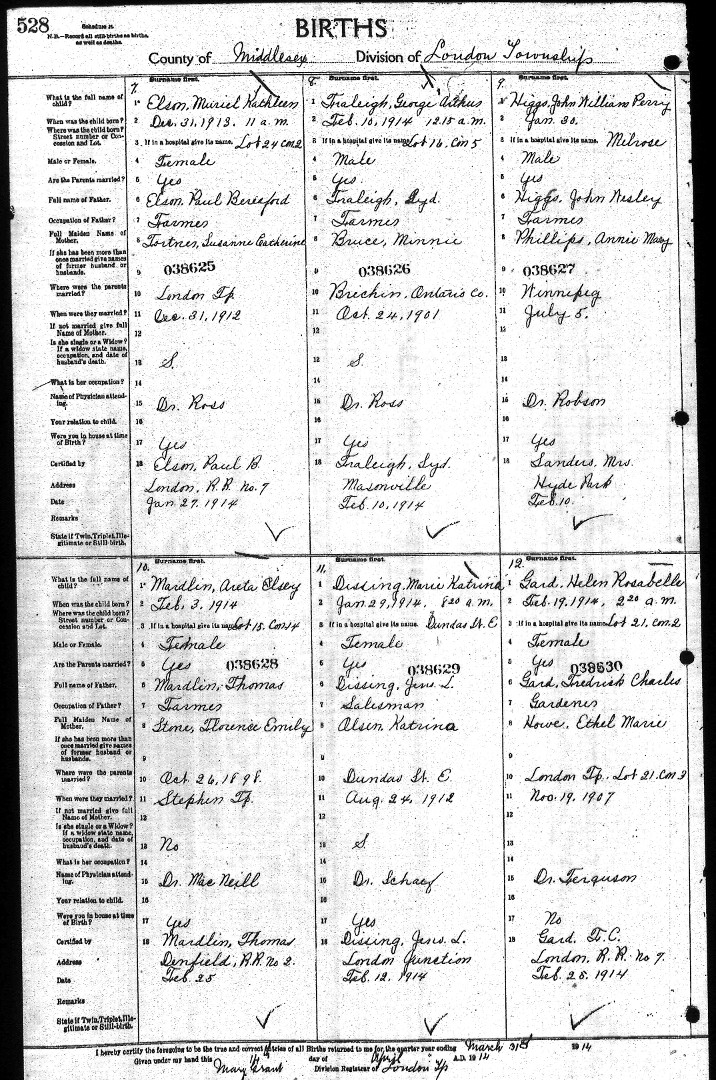 528
Schedule A.
N.B.—Record all still-births as births, as well as deaths.
BIRTHS
County of Middlesex Division of London Township
7. Surname first. 8. Surname first. 9. Surname first.
What is the full name of child? 1 Elson, Muriel Kathleen 1 Fraleigh, George Arthur 1 Higgs, John William Perry
When was the child born? 2 Dec. 31, 1913. 11 a.m. 2 Feb. 10, 1914 12.15 a.m. 2 Jan. 30.
Where was the child born? Street number or Concession and Lot. 3 If in a hospital give its name. Lot 24 con 2 3 If in a hospital give its name. Lot 16. Con 5 3 If in a hospital give its name. Melrose
Male or Female. 4 Female 4 Male 4 Male
Are the Parents married? 5 Yes 5 Yes. 5 Yes
Full name of Father. 6 Elson, Paul Beresford 6 Fraleigh, Syd. 6 Higgs, John Wesley
Occupation of Father? 7 Farmer 7 Farmer 7 Farmer
Full Maiden Name of Mother. 8 Fortner, Susanne Catherine 8 Bruce, Minnie 8 Phillips, Annie Mary
If she has been more than once married give names of former husband or husbands. 9 038625 9 038626 9 038627
Where were the parents married? 10 London Tp. 10 Brechin, Ontario Co. 10 Winnipeg
When were they married? 11 Dec. 31, 1912 11 Oct. 24, 1901 11 July 5.
If not married give full Name of Mother. 12 12
Is she single or a Widow? If a widow state name, occupation, and date of husband's death. 13 S. 12 S. 13
What is her occupation? 14 14 14
Name of Physician attending. 15 Dr. Ross 15 Dr. Ross 15 Dr. Robson
Your relation to child. 16 16 16
Were you in house at time of Birth? 17 Yes 17 Yes 17 Yes
Certified by 18 Elson, Paul B. 18 Fraleigh, Syd. 18 Sanders, Mrs.
Address London, R.R. No. 7 Masonville Hyde Park
Date Jan. 27. 1914 Feb. 10, 1914 Feb. 10.
Remarks
State if Twin, Triplet, Illegitimate or Still-birth.
10. Surname first. 11. Surname first. 12. Surname first.
What is the full name of child? 1 Mardlin, Areta Elsey 1 Dissing, Marie Katrina 1 Gard, Helen Rosabelle
When was the child born? 2 Feb. 3. 1914 2 Jan. 29, 1914. 8 20 a.m. 2 Feb. 19. 1914, 2 20 a.m.
Where was the child born? Street number or Concession and Lot. 3 If in a hospital give its name. Lot 15. Con 14 3 If in a hospital give its name. Dundas St. E 3 If in a hospital give its name. Lot 21. con 2
Male or Female. 4 Female 4 Female 4 Female
Are the Parents married? 5 Yes 038628 5 Yes 038629 5 Yes 038630
Full name of Father. 6 Mardlin, Thomas 6 Dissing, Jens L. 6 Gard, Fredrick Charles
Occupation of Father? 7 Farmer 7 Salesman 7 Gardener
Full Maiden Name of Mother. 8 Stone, Florence Emily 8 Olsen, Katrina 8 Howe, Ethel Marie
If she has been more than once married give names of former husband or husbands. 9 9 9
Where were the parents married? 10 Oct 26, 1898. 10 Dundas St. E. 10 London Tp. Lot 21. Con 3
When were they married? 11 Stephen Tp. 11 Aug. 24, 1912 11 Nov. 19, 1907
If not married give full Name of Mother. 12 12
Is she single or a Widow? If a widow state name, occupation, and date of husband's death. 13 No 13 S. 13
What is her occupation? 14 14 14
Name of Physician attending. 15 Dr. MacNeill 15 Dr. Schaef 15 Dr. Ferguson
Your relation to child. 16 16 16
Were you in house at time of Birth? 17 Yes 17 Yes 17 No
Certified by 18 Mardlin, Thomas 18 Dissing, Jens. L. 18 Gard, F. C.
Address Denfield, R.R. No 2. London Junction London, R.R. No 7.
Date Feb. 25 Feb. 12. 1914 Feb. 25, 1914
Remarks
State if Twin, Triplet, Illegitimate or Still-birth.
I hereby certify the foregoing to be the true and correct entries of all Births returned to me for the quarter year ending March 31st 1914
Given under my hand this 14 day of April A.D. 1914
Mary Grant Division Registrar of London Tp